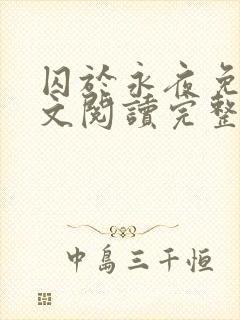 囚於永夜免
文閱讀完整
中島三千恒